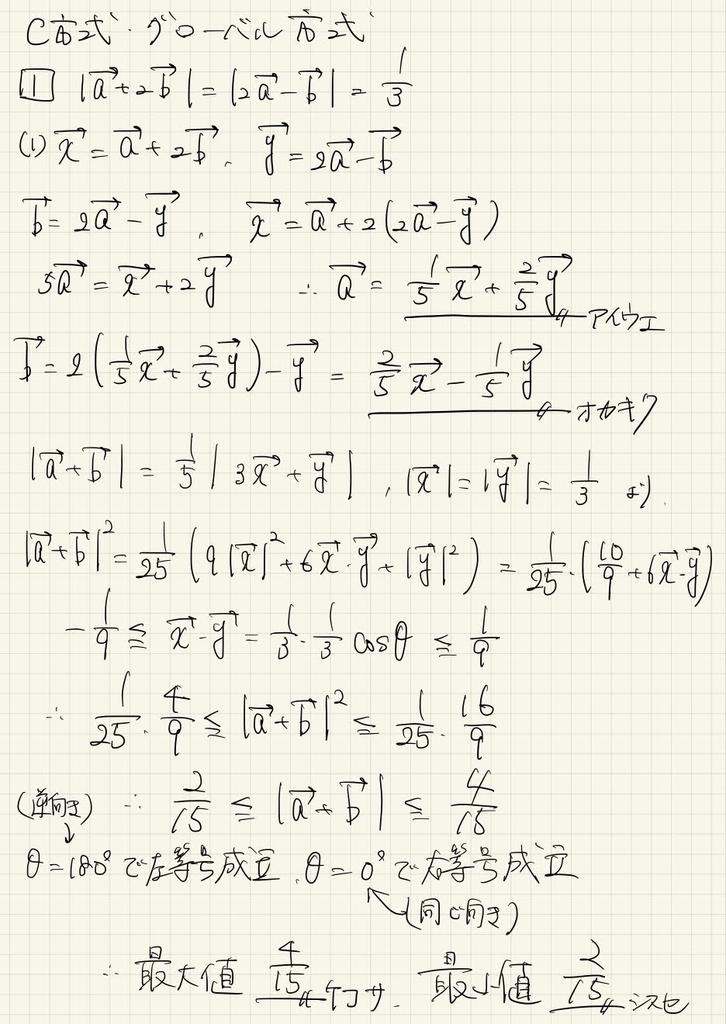 C方式・グローバル方式
1 |a→+2b→| = |2a→-b→| = 1/3
(1) x→ = a→+2b→, y→ = 2a→-b→
b→ = 2a→-y→, x→ = a→+2(2a→-y→)
5a→ = x→+2y→ ∴ a→ = 1/5 x→ + 2/5 y→ アイウエ
b→ = 2(1/5 x→ + 2/5 y→) - y→ = 2/5 x→ - 1/5 y→ オカキク
|a→+b→| = 1/5 |3x→+y→|, |x→|=|y→|=1/3 より
|a→+b→|² = 1/25 (9|x→|²+6x→・y→+|y→|²) = 1/25・(10/9+6x→・y→)
-1/9 ≦ x→・y→ = 1/3・1/3 cosθ ≦ 1/9
∴ 1/25・4/9 ≦ |a→+b→|² ≦ 1/25・16/9
(逆向き) ∴ 2/15 ≦ |a→+b→| ≦ 4/15
θ=180°で左等号成立, θ=0°で右等号成立
(同じ向き)
∴ 最大値 4/15 ケコサ, 最小値 2/15 シスセ